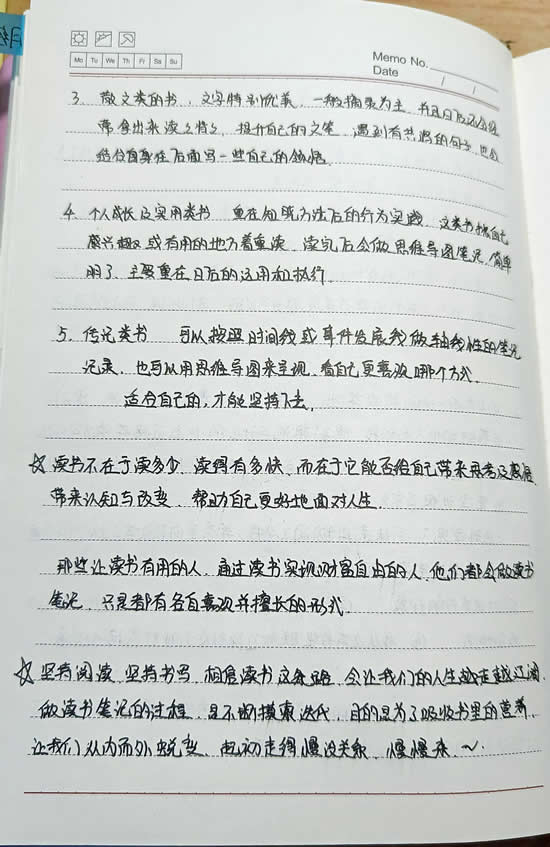 Mo Tu We Th Fr Sa Su
Memo No.
Date / /
3. 散文类的书,文字特别优美,一般摘录为主,并且日后还会经
常拿出来读之悟之,提升自己的文笔,遇到有共鸣的句子,也会
结合自身在后面写一些自己的领悟.
4. 个人成长及实用类书 重在知晓方法后的行为实践,这类书挑自己
感兴趣或有用的地方着重读,读完后会做思维导图笔记,简单
明了,主要重在日后的运用和执行.
5. 传记类书 可以按照时间线或事件发展线做轴线性的笔记
记录,也可以用思维导图来呈现,看自己更喜欢哪个方式,
适合自己的,才能坚持下去.
☆ 读书不在于读多少,读得有多快,而在于它能否给自己带来思考及感悟,
带来认知与改变,帮助自己更好地面对人生.
那些让读书有用的人,通过读书实现财富自由的人,他们都会做读书
笔记,只是都有各自喜欢并擅长的形式.
☆ 坚持阅读,坚持书写,相信读书这条路,会让我们的人生越走越辽阔.
做读书笔记的过程,是不断摸索迭代,目的是为了吸收书里的营养,
让我们从内而外蜕变,起初走得慢没关系,慢慢来.~.